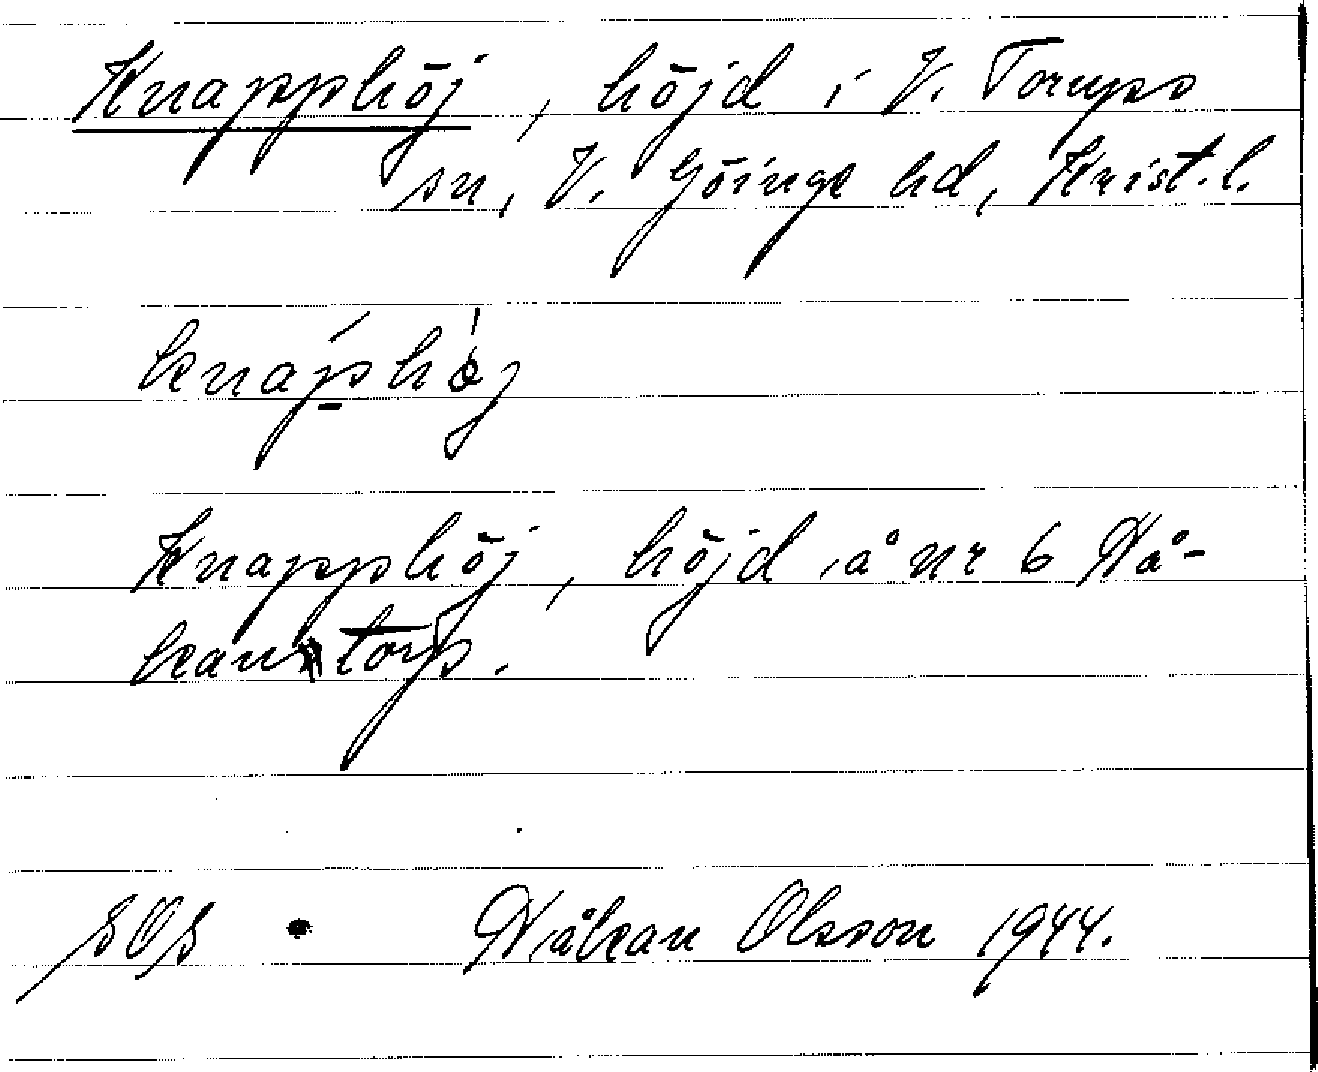 Knapphöj, höjd i V. Torups
sn, V. Göinge hd, Krist. l.
knáp̱hø̍j
Knapphöj, höjd å nr 6 Hå-
kanstorp.
SOS Håkan Olsson 1944.